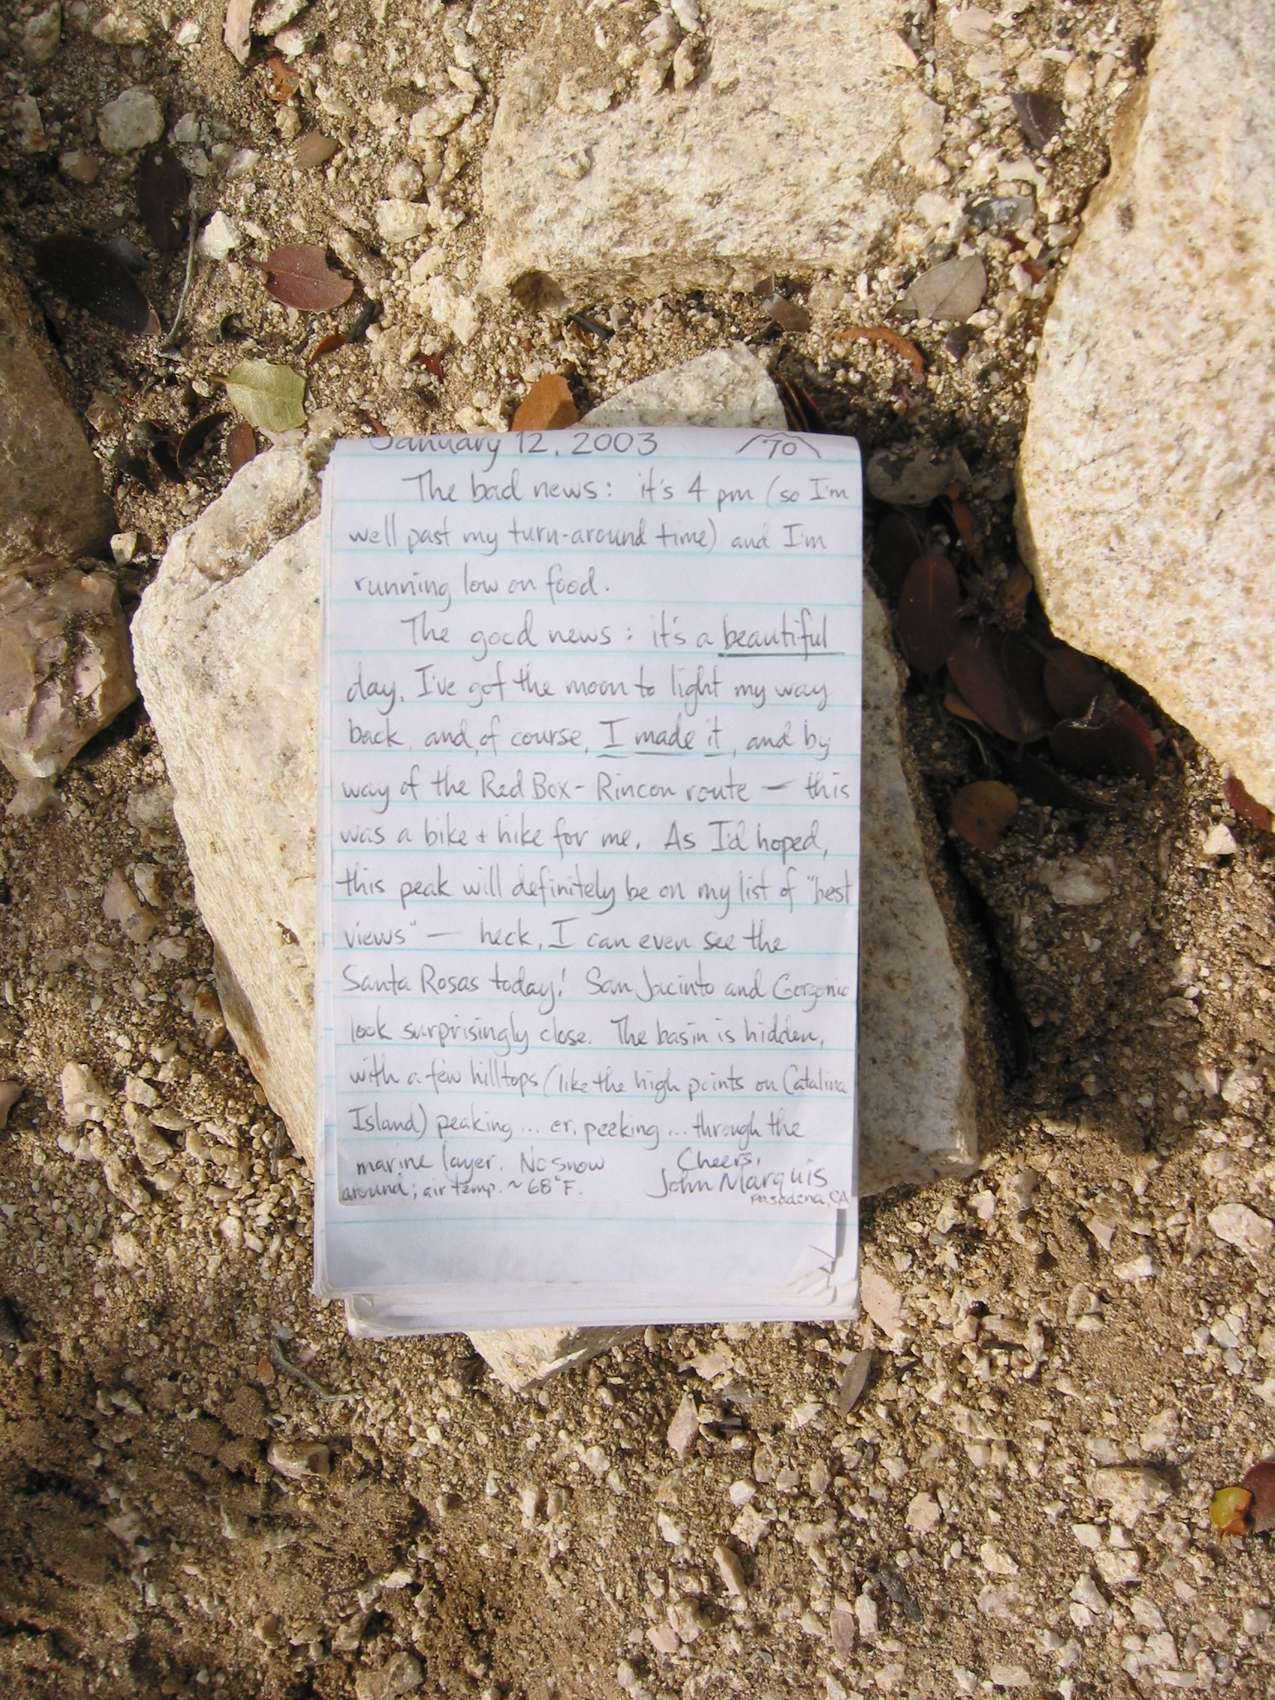 January 12, 2003 TO
The bad news: it's 4 pm (so I'm
well past my turn-around time) and I'm
running low on food.
The good news: it's a beautiful
day, I've got the moon to light my way
back, and, of course, I made it, and by
way of the Red Box - Rincon route — this
was a bike + hike for me. As I'd hoped,
this peak will definitely be on my list of "best
views" — heck, I can even see the
Santa Rosas today! San Jacinto and Gorgonio
look surprisingly close. The basin is hidden,
with a few hilltops (like the high points on Catalina
Island) peaking ... er, peeking ... through the
marine layer. No snow
around; air temp. ~ 68°F.
Cheers,
John Marquis
Pasadena, CA